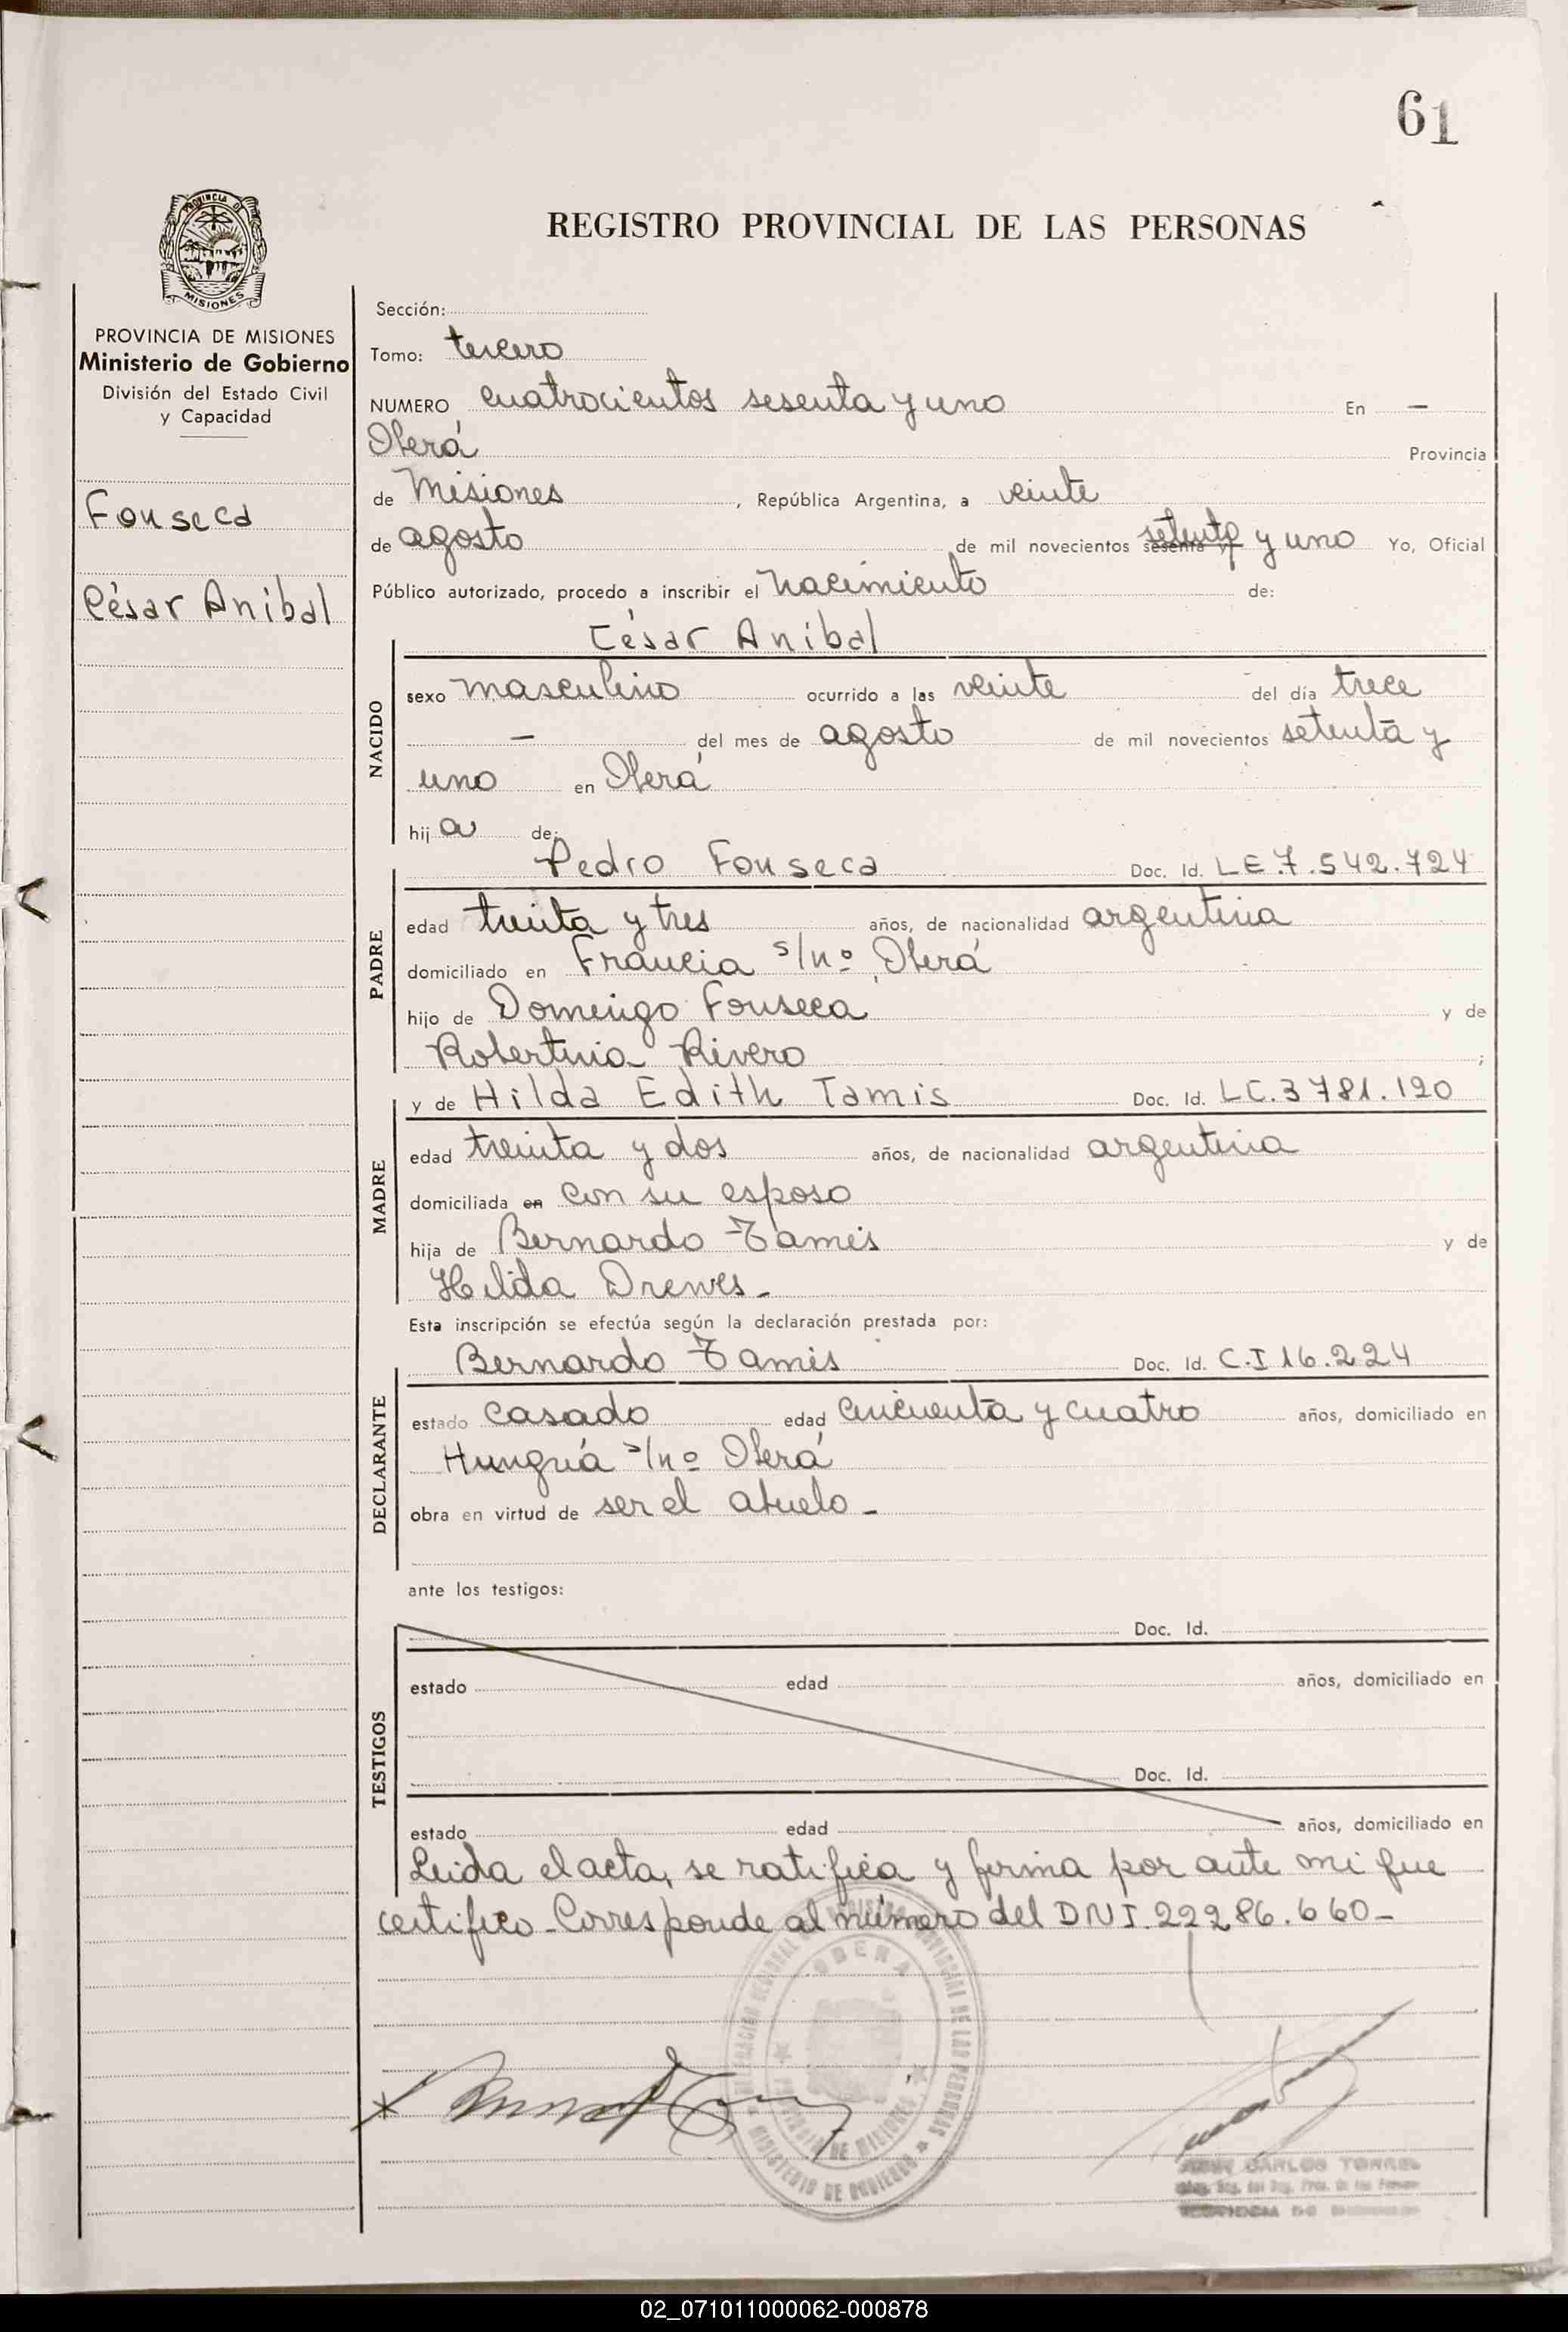 61
PROVINCIA DE
MISIONES
REGISTRO PROVINCIAL DE LAS PERSONAS
PROVINCIA DE MISIONES
Ministerio de Gobierno
División del Estado Civil
y Capacidad
Fonseca
César Aníbal
Sección:
Tomo: tercero
NUMERO cuatrocientos sesenta y uno En —
Oberá Provincia
de Misiones, República Argentina, a veinte
de agosto de mil novecientos sesenta y setenta y uno Yo, Oficial
Público autorizado, procedo a inscribir el nacimiento de:
César Aníbal
NACIDO
sexo masculino ocurrido a las veinte del día trece
— del mes de agosto de mil novecientos setenta y
uno en Oberá
hij a de:
PADRE
Pedro Fonseca Doc. Id. LE.7.542.724
edad treinta y tres años, de nacionalidad argentina
domiciliado en Francia s/nº Oberá
hijo de Domingo Fonseca y de
Robertina Rivero ;
MADRE
y de Hilda Edith Tamis Doc. Id. LC.3781.120
edad treinta y dos años, de nacionalidad argentina
domiciliada en con su esposo
hija de Bernardo Tamis y de
Hilda Drewes-
Esta inscripción se efectúa según la declaración prestada por:
DECLARANTE
Bernardo Tamis Doc. Id. C.I 16.224
estado casado edad cincuenta y cuatro años, domiciliado en
Hungría s/nº Oberá
obra en virtud de ser el abuelo-
ante los testigos:
TESTIGOS
Doc. Id.
estado edad años, domiciliado en
Doc. Id.
estado edad años, domiciliado en
Leida el acta, se ratifica y firma por ante mi que
certifico-Corresponde al número del DNI.22286.660-
OBERA
PROVINCIA DE MISIONES
MINISTERIO DE GOBIERNO
CARLOS
02_071011000062-000878